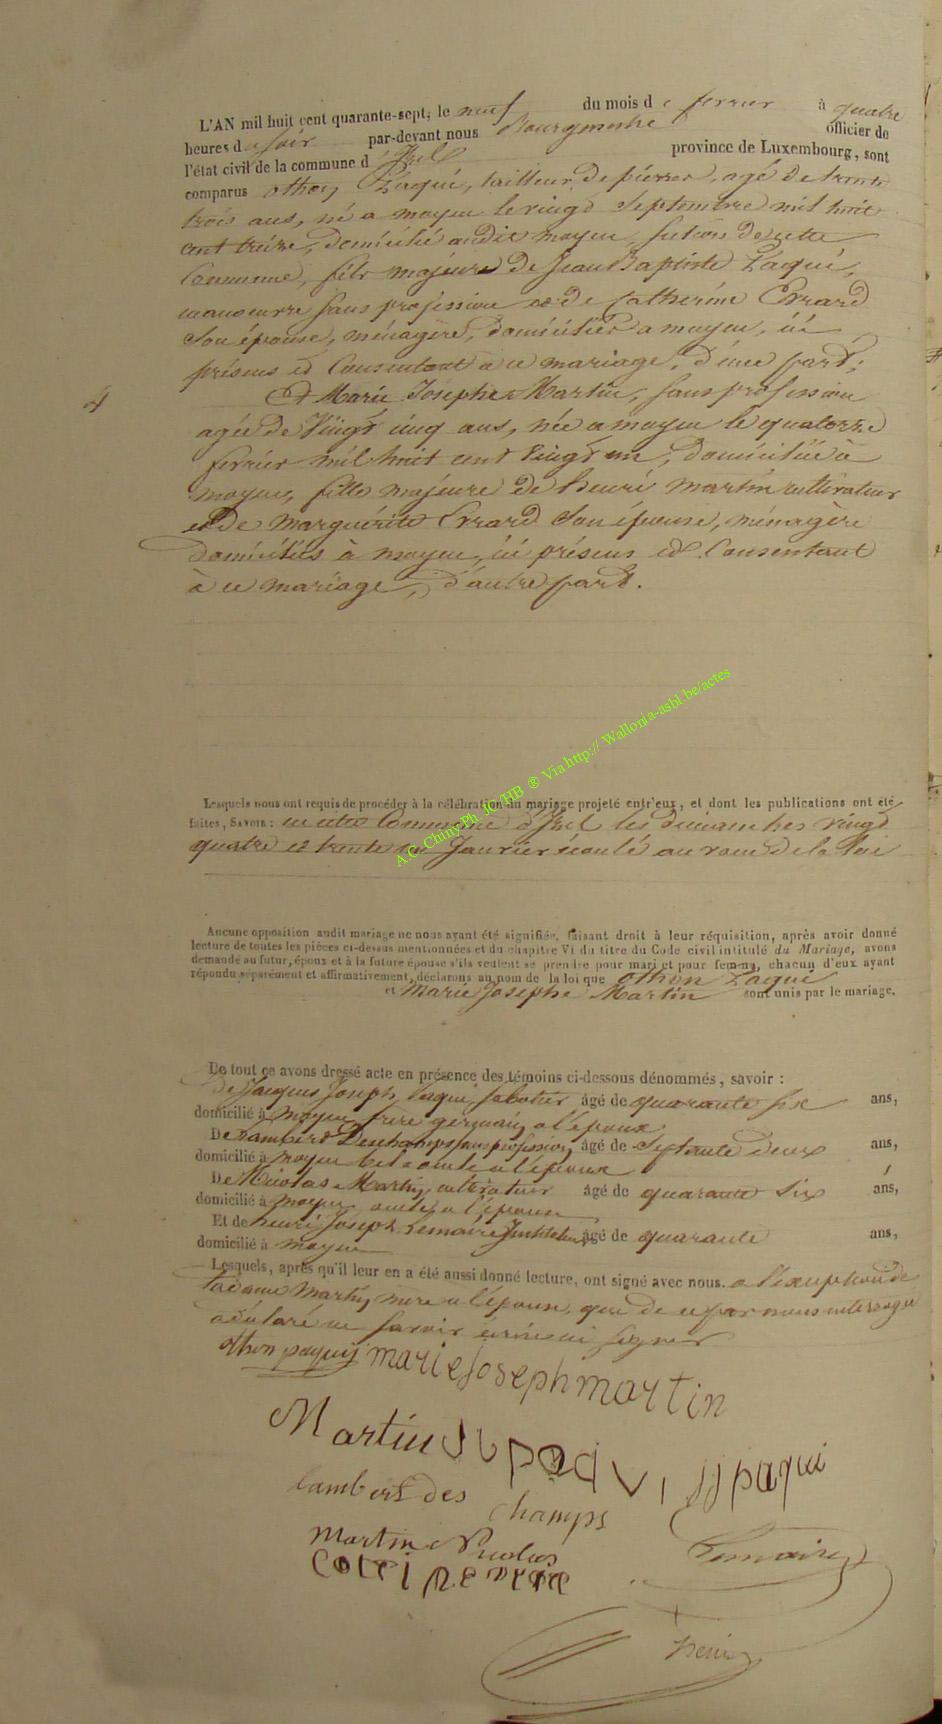 L'AN mil huit cent quarante-sept, le neuf du mois de fevrier à quatre
heures du soir par-devant nous Bourgmestre officier de
l'état civil de la commune d'Izel province de Luxembourg, sont
comparus othon Paqué, tailleur de pierres, agé de trente
trois ans, né a moyen le vingt Septembre mil huit
cent treize, domicilié audit moyen, section de cette
Commune, fils majeure de Jean Baptiste Paqué,
manoeuvre sans profession et de Catherine Errard
Son épouse, ménagère, domiciliés a moyen, ici
présens et Consentant à ce mariage, d'une part;
Et Marie Josephe Martin, sans profession
agée de Vingt cinq ans, née a moyen le quatorze
fevrier mil huit cent Vingt un, domiciliée à
moyen, fille majeure de henri martin cultivateur
et de marguérite Errard Son épouse, ménagère
domiciliés à moyen, ici présens et Consentant
à ce mariage, d'autre part.
4
Lesquels nous ont requis de procéder à la célébration du mariage projeté entr'eux, et dont les publications ont été
faites, SAVOIR: en cette Commune d'Izel les dimanches vingt
quatre et trente un Janvier écoulé au vœu de la loi
Aucune opposition audit mariage ne nous ayant été signifiée, faisant droit à leur réquisition, après avoir donné
lecture de toutes les pièces ci-dessus mentionnées et du chapitre VI du titre du Code civil intitulé du Mariage, avons
demandé au futur, époux et à la future épouse s'ils veulent se prendre pour mari et pour femme, chacun d'eux ayant
répondu séparément et affirmativement, déclarons au nom de la loi que othon Paqué
et Marie Josephe Martin sont unis par le mariage.
De tout ce avons dressé acte en présence des témoins ci-dessous dénommés, savoir :
De Jacques Joseph Paqui, sabotier âgé de quarante six ans,
domicilié à moyen frère germain a l'époux
De Lambert Deschamps sans profession âgé de Septante deux ans,
domicilié à moyen bel oncle a l'époux
De Nicolas Martin, cultivateur âgé de quarante six ans,
domicilié à moyen oncle a l'épouse
Et de henri Joseph Lemaire Instituteur âgé de quarante ans,
domicilié à moyen
Lesquels, après qu'il leur en a été aussi donné lecture, ont signé avec nous. a l'exception de
la dame Martin mère a l'épouse, que de ce par nous interrogée
a déclaré ne savoir écrire ni signer
othon paquij marie joseph martin
Martin paqui JJ paqui
lambert des champs
martin Nicolas Lemaire